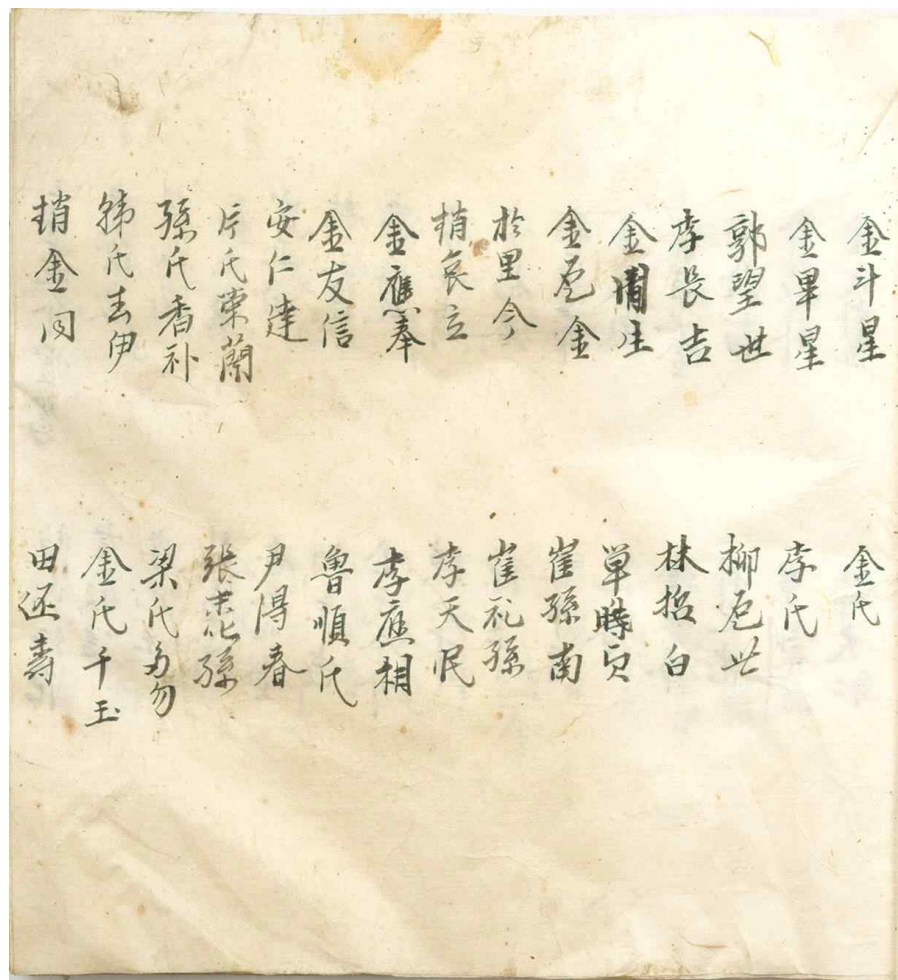 金斗星
金畢星
郭望世
李長吉
金生
金金
於里今
趙哀立
金應奉
金友信
安仁達
片氏東蘭
孫氏香礼
韓氏吉伊
趙金同
金氏
李氏
柳世
林哲白
單時
崔孫南
崔礼孫
李天民
李應相
魯順氏
尹得春
張孫
梁氏勿
金氏千玉
田壽